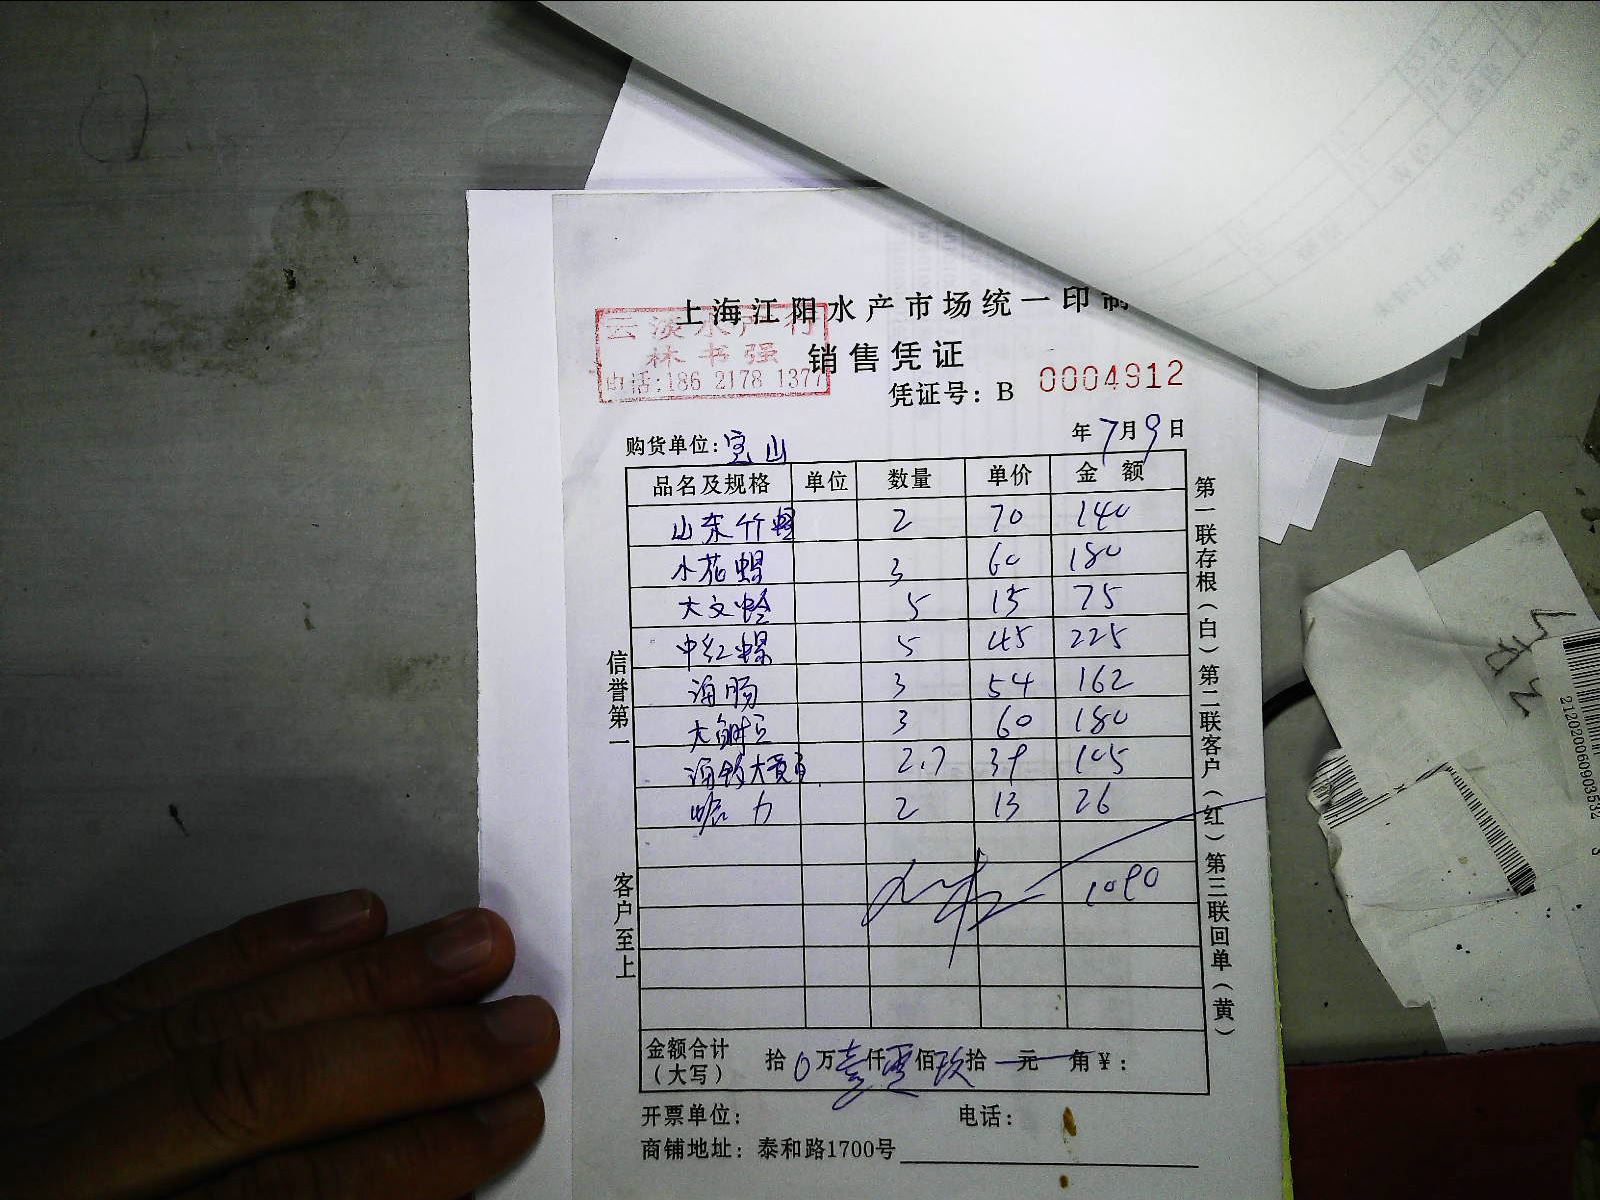 上海江阳水产市场统一印制
云淡水产行
林书强
电话:186 2178 1377
销售凭证
凭证号：B 0004912
购货单位：宝山
年7月9日
品名及规格 单位 数量 单价 金额
山东竹蛏 2 70 140
小花螺 3 60 180
大文蛤 5 15 75
中红螺 5 45 225
海肠 3 54 162
大鲍 3 60 180
2.7 39 105
力 2 13 26
1090
金额合计（大写） 拾0万壹仟零佰玖拾一元 角¥：
开票单位： 电话：
商铺地址：泰和路1700号
信誉第一
客户至上
第一联存根（白）第二联客户（红）第三联回单（黄）
212020060903532